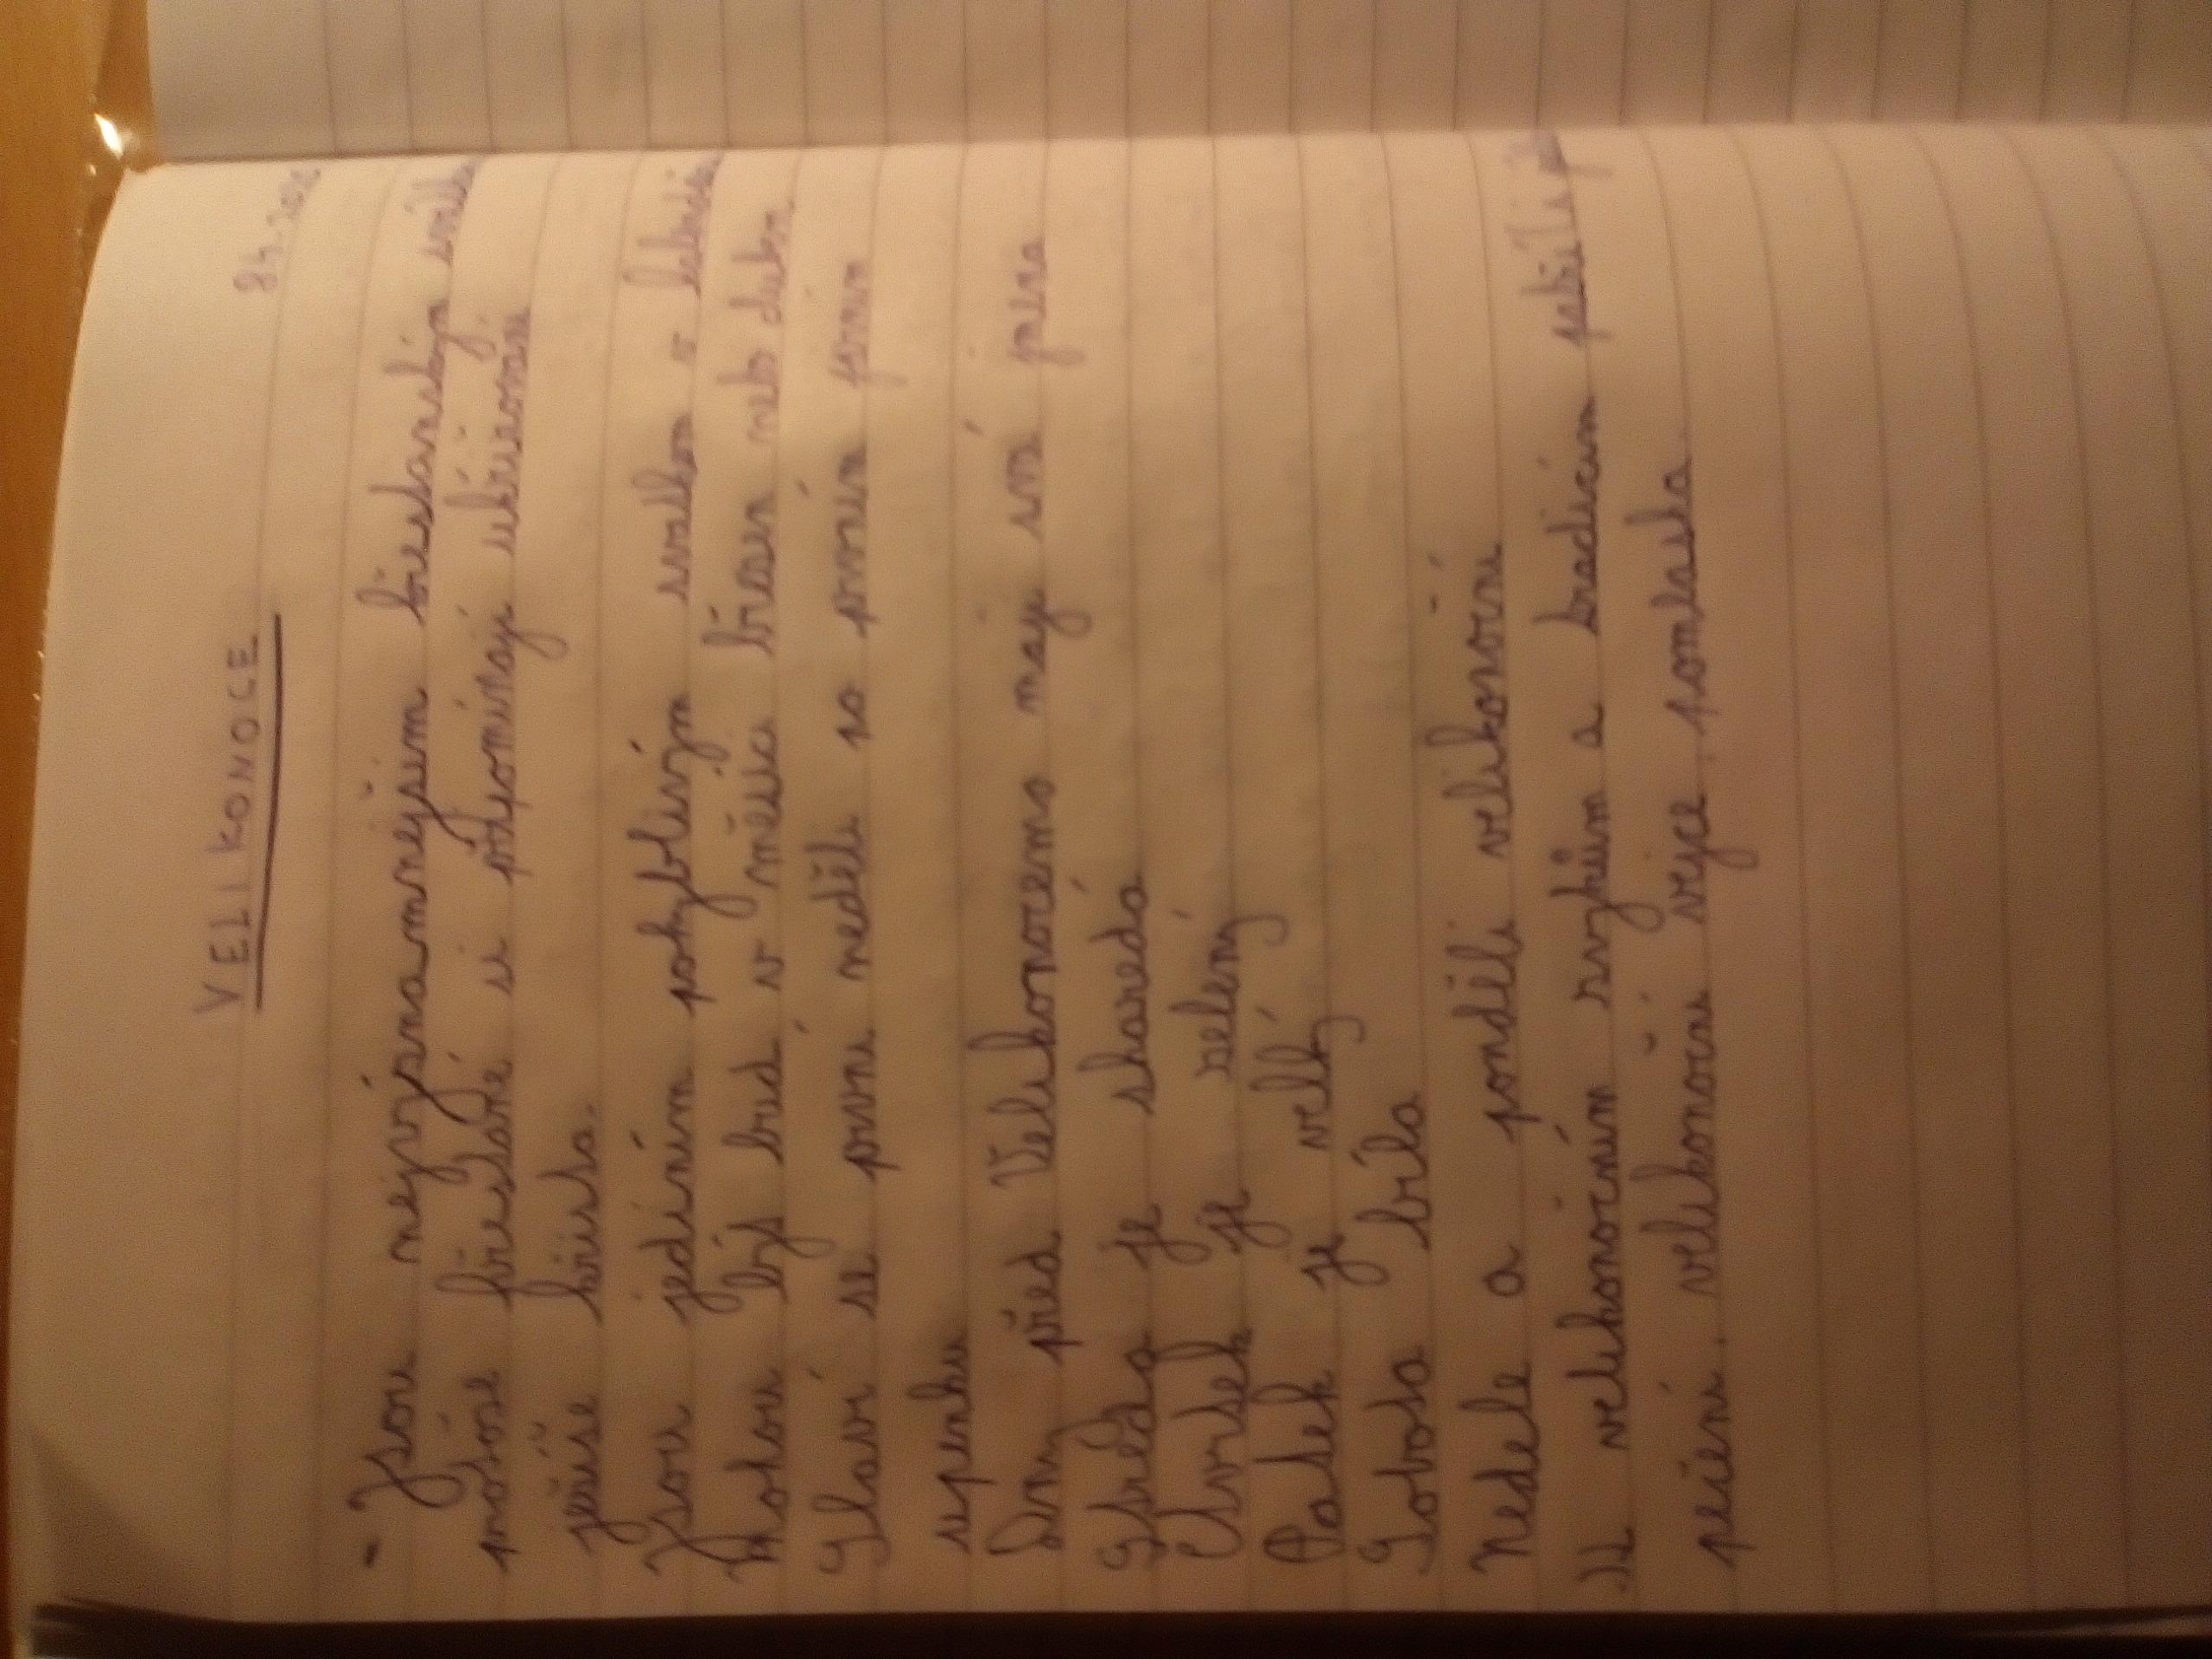 VELIKONOCE
8.4.2020
- Jsou nejvýznamnějším křesťanským svátke
protože křesťané si připomínají ukřižování
ježíše krista.
Jsou jediným pohyblivým svátkem v kalendá
Mohou být buď v měsíci březen nebo duben
Slaví se první neděli po prvním
úplňku
Dny před Velikonocemi mají svá jména
Středa je škaredá
Čtvrtek je zelený
Pátek je velký
Sobota bílá
Neděle a pondělí velikonoční
K velikonočním zvykům a tradicím patří
pečení, velikonoční vejce, pomlázka